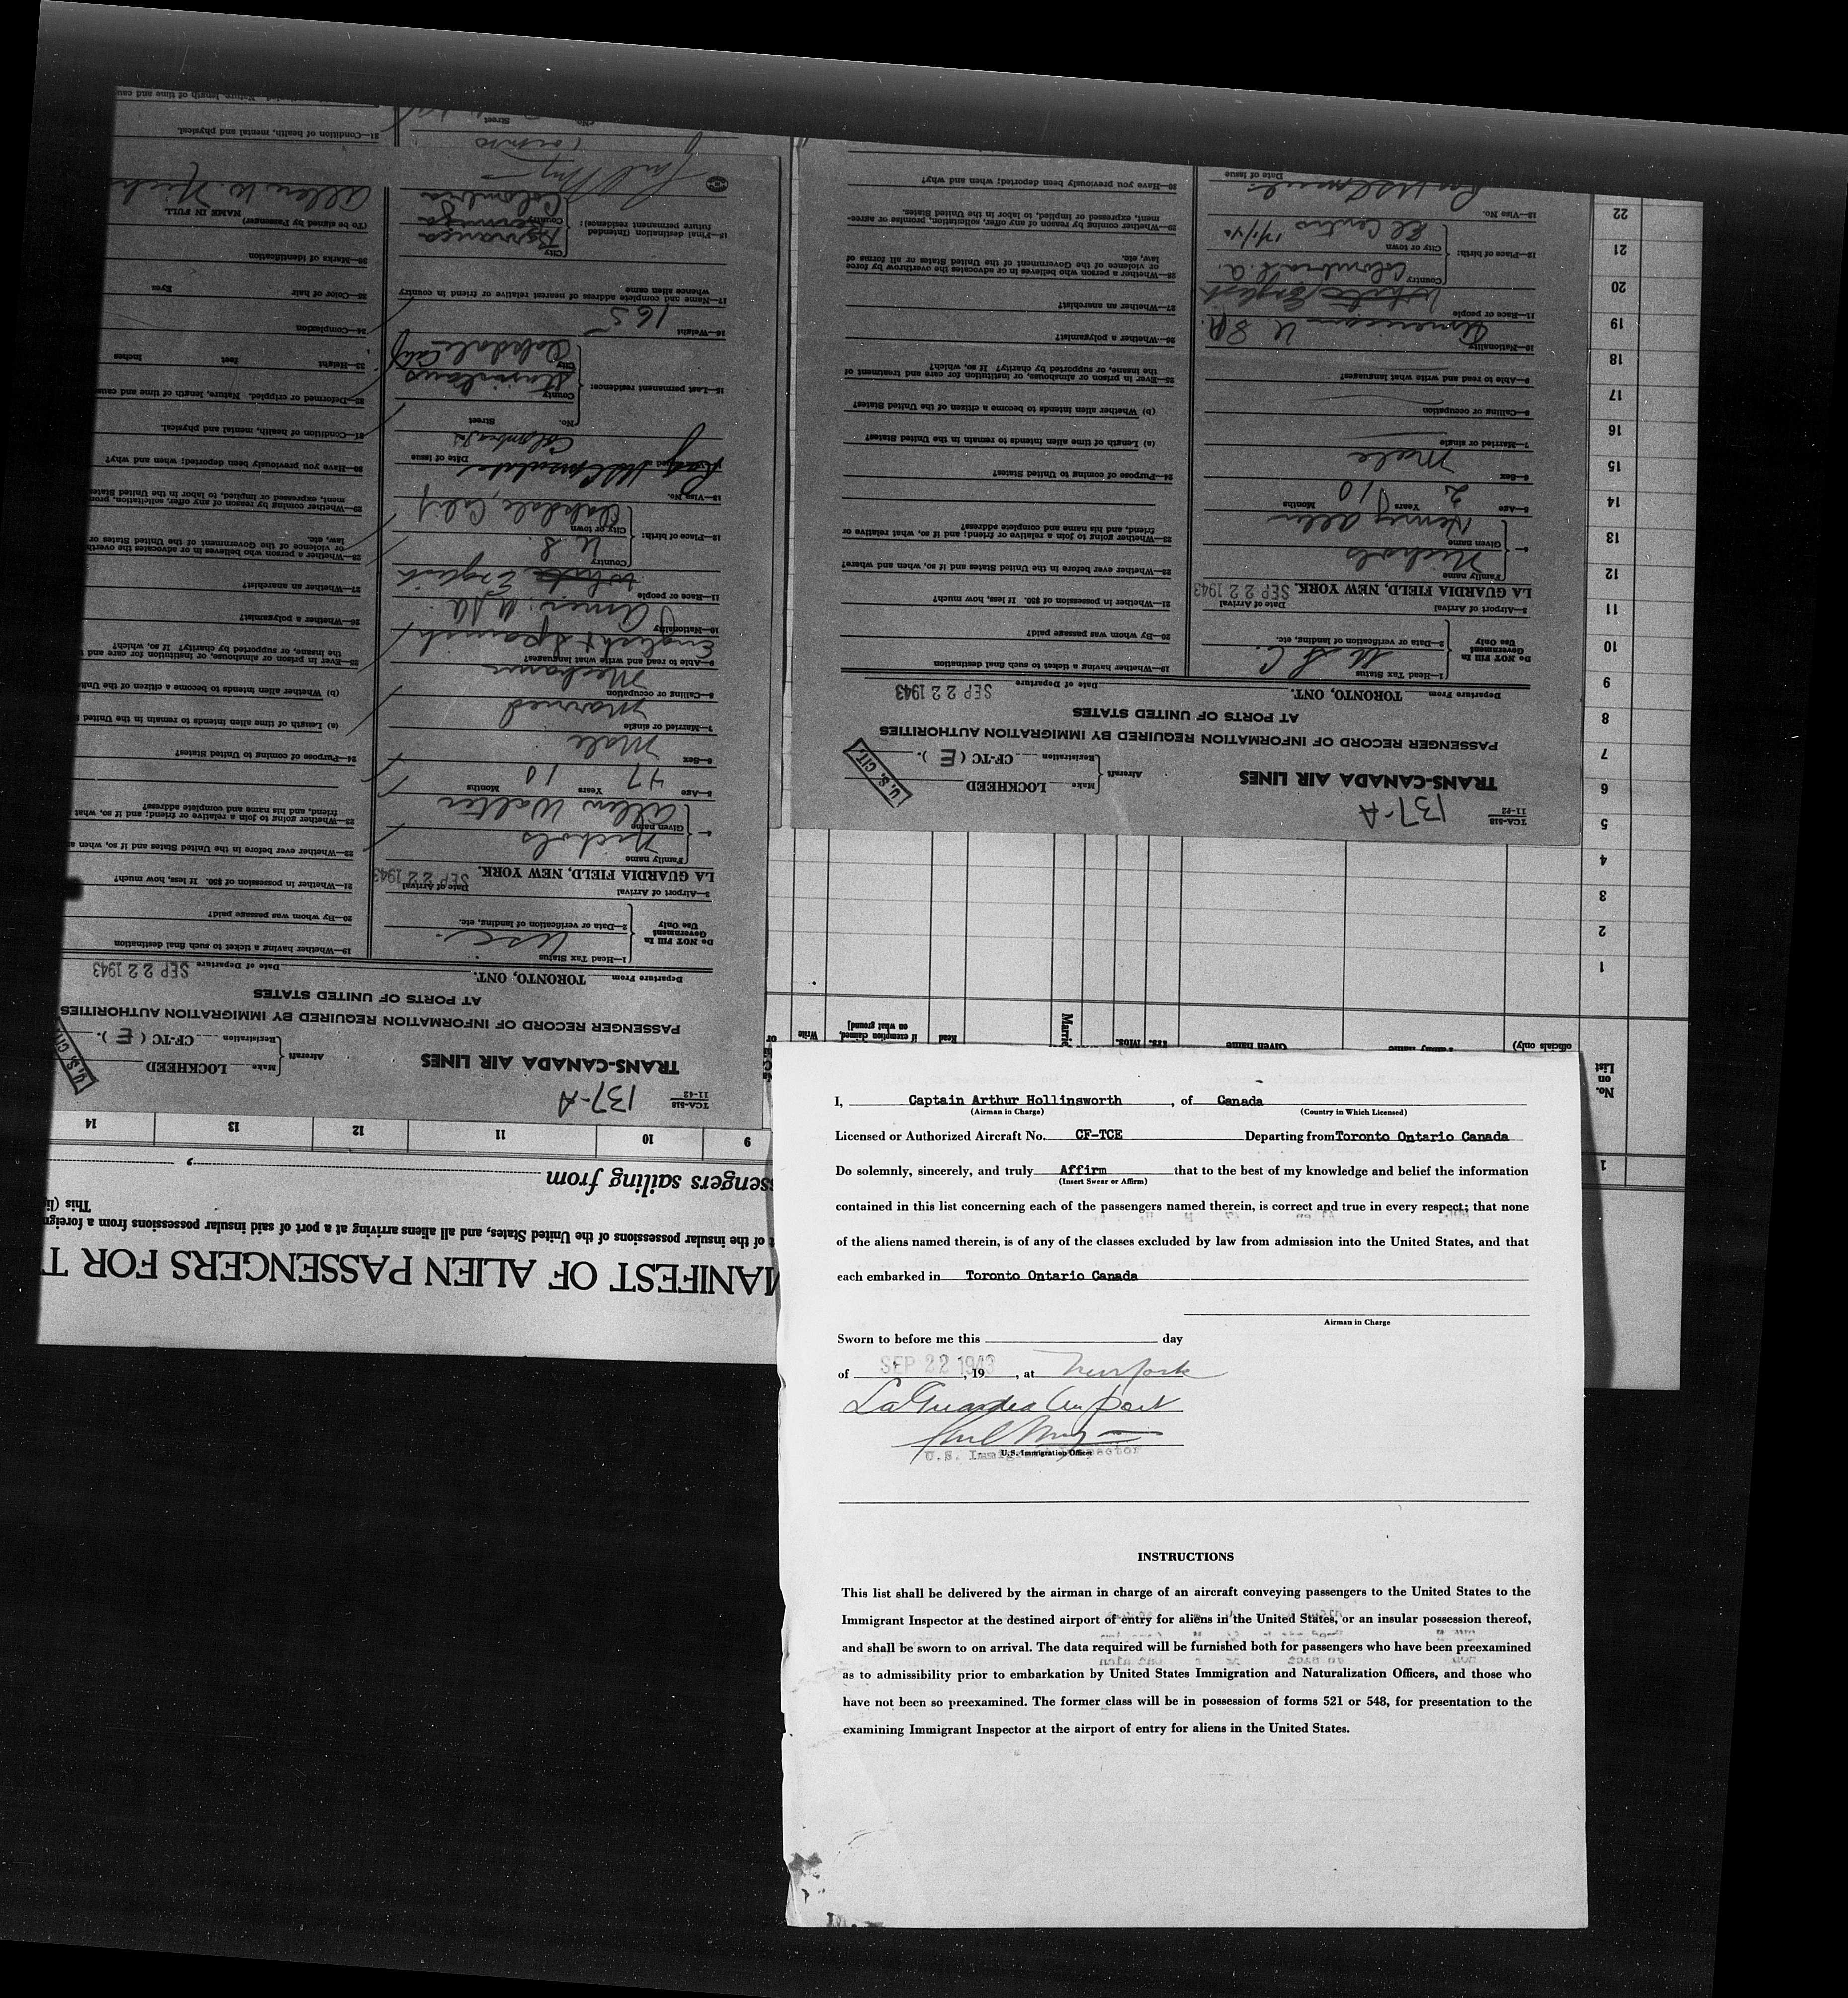 I, Captain Arthur Hollinsworth, of Canada
(Airman in Charge) (Country in Which Licensed)
Licensed or Authorized Aircraft No. CF-TCE Departing from Toronto Ontario Canada
Do solemnly, sincerely, and truly Affirm that to the best of my knowledge and belief the information
(Insert Swear or Affirm)
contained in this list concerning each of the passengers named therein, is correct and true in every respect; that none
of the aliens named therein, is of any of the classes excluded by law from admission into the United States, and that
each embarked in Toronto Ontario Canada
Airman in Charge
Sworn to before me this day
of SEP 22 1943, 19 , at New York
La Guardia Airport
U.S. Immigration Officer
U.S. Immigrant Inspector
INSTRUCTIONS
This list shall be delivered by the airman in charge of an aircraft conveying passengers to the United States to the
Immigrant Inspector at the destined airport of entry for aliens in the United States, or an insular possession thereof,
and shall be sworn to on arrival. The data required will be furnished both for passengers who have been preexamined
as to admissibility prior to embarkation by United States Immigration and Naturalization Officers, and those who
have not been so preexamined. The former class will be in possession of forms 521 or 548, for presentation to the
examining Immigrant Inspector at the airport of entry for aliens in the United States.
TCA-518
11-42
137-A
TRANS-CANADA AIR LINES
Aircraft Make LOCKHEED
Registration CF-TC ( E ).
U.S. CIT.
PASSENGER RECORD OF INFORMATION REQUIRED BY IMMIGRATION AUTHORITIES
AT PORTS OF UNITED STATES
Departure From TORONTO, ONT. Date of Departure SEP 22 1943
Do NOT Fill In
Government
Use Only
1—Head Tax Status
2—Data or verification of landing, etc.
USC
3—Airport of Arrival Date of Arrival
LA GUARDIA FIELD, NEW YORK. SEP 22 1943
4— Family name Nichols
Given name Allen Walter
5—Age 47 Years 10 Months
6—Sex Male
7—Married or single Married
8—Calling or occupation Mechanic
9—Able to read and write what languages? English & Spanish
10—Nationality Amer. USA
11—Race or people White English
12—Place of birth: Country U.S.
City or town Oakdale, Calif
13—Visa No.
Date of Issue
Colombia
15—Last permanent residence: No. Street
County Stanislaus
City Oakdale Calif
16—Weight 165
17—Name and complete address of nearest relative or friend in country
whence alien came
18—Final destination (Intended
future permanent residence): City Barranca
Bermeja
Country Colombia
19—Whether having a ticket to such final destination
20—By whom was passage paid?
21—Whether in possession of $50. If less, how much?
22—Whether ever before in the United States and if so, when a
23—Whether going to join a relative or friend; and if so, what
friend, and his name and complete address?
24—Purpose of coming to United States?
(a) Length of time alien intends to remain in the United
(b) Whether alien intends to become a citizen of the Unite
25—Ever in prison or almshouse, or institution for care and t
the insane, or supported by charity? If so, which?
26—Whether a polygamist?
27—Whether an anarchist?
28—Whether a person who believes in or advocates the overth
or violence of the Government of the United States or
law, etc.
29—Whether coming by reason of any offer, solicitation, prom
ment, expressed or implied, to labor in the United States
30—Have you previously been deported; when and why?
31—Condition of health, mental and physical.
32—Deformed or crippled. Nature, length of time and caus
33—Height feet inches
34—Complexion
35—Color of hair Eyes
36—Marks of identification
(To be signed by Passenger) NAME IN FULL
Allen W. Nich
31—Condition of health, mental and physical.
Street
TCA-518
11-42
137-A
TRANS-CANADA AIR LINES
Aircraft Make LOCKHEED
Registration CF-TC ( E ).
U.S. CIT.
PASSENGER RECORD OF INFORMATION REQUIRED BY IMMIGRATION AUTHORITIES
AT PORTS OF UNITED STATES
Departure From TORONTO, ONT. Date of Departure SEP 22 1943
Do NOT Fill In
Government
Use Only
1—Head Tax Status
2—Data or verification of landing, etc.
U S C.
3—Airport of Arrival Date of Arrival
LA GUARDIA FIELD, NEW YORK. SEP 22 1943
4— Family name Nichols
Given name Henry Allen
5—Age 2 Years 10 Months
6—Sex Male
7—Married or single
8—Calling or occupation
9—Able to read and write what languages?
10—Nationality American U S A.
11—Race or people White English
12—Place of birth: Country Colombia S.A.
City or town El Centro
13—Visa No.
Date of Issue
19—Whether having a ticket to such final destination
20—By whom was passage paid?
21—Whether in possession of $50. If less, how much?
22—Whether ever before in the United States and if so, when and where?
23—Whether going to join a relative or friend; and if so, what relative or
friend, and his name and complete address?
24—Purpose of coming to United States?
(a) Length of time alien intends to remain in the United States?
(b) Whether alien intends to become a citizen of the United States?
25—Ever in prison or almshouse, or institution for care and treatment of
the insane, or supported by charity? If so, which?
26—Whether a polygamist?
27—Whether an anarchist?
28—Whether a person who believes in or advocates the overthrow by force
or violence of the Government of the United States or all forms of
law, etc.
29—Whether coming by reason of any offer, solicitation, promise or agree-
ment, expressed or implied, to labor in the United States.
30—Have you previously been deported; when and why?
MANIFEST OF ALIEN PASSENGERS FOR T
t of the insular possessions of the United States, and all aliens arriving at a port of said insular possessions from a foreign
This (li
ssengers sailing from
9 10 11 12 13 14
1
No.
on
List
officials only)
Family name
Given name
Yrs. Mos.
Read
if exemption claimed,
on what ground]
Write
1
2
3
4
5
6
7
8
9
10
11
12
13
14
15
16
17
18
19
20
21
22